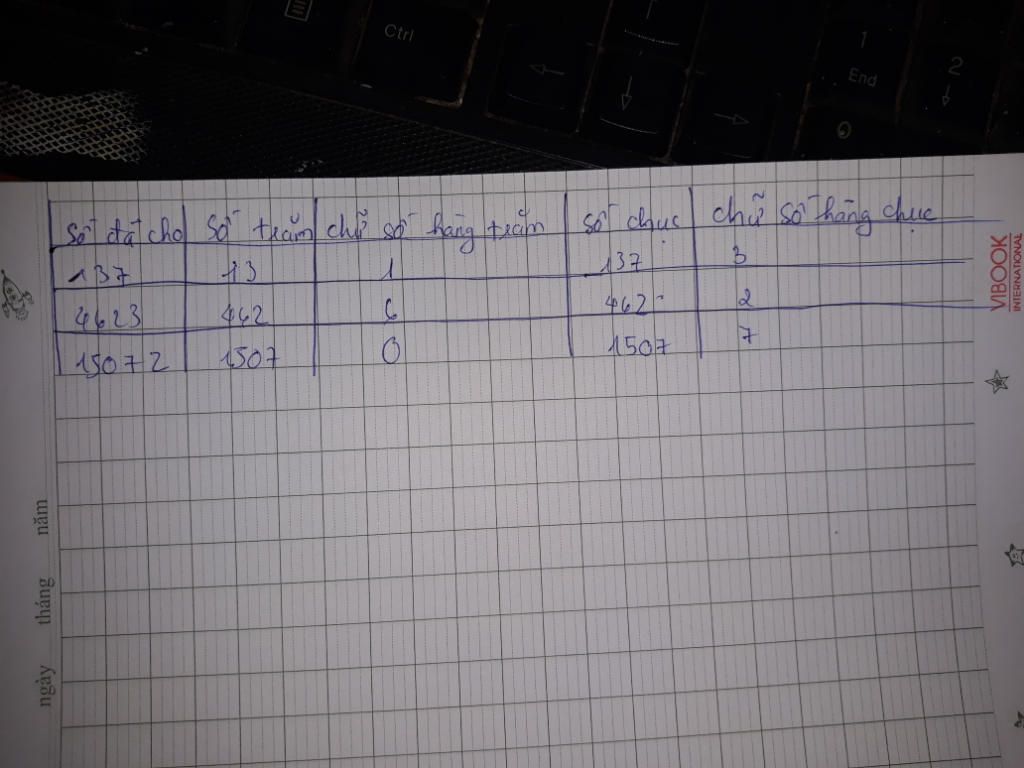 Ctrl
1
End
2
số đã cho số trăm chữ số hàng trăm số chục chữ số hàng chục
137 13 1 137 3
4623 462 6 462 2
15072 1507 0 1507 7
VIBOOK
INTERNATIONAL
ngày tháng năm